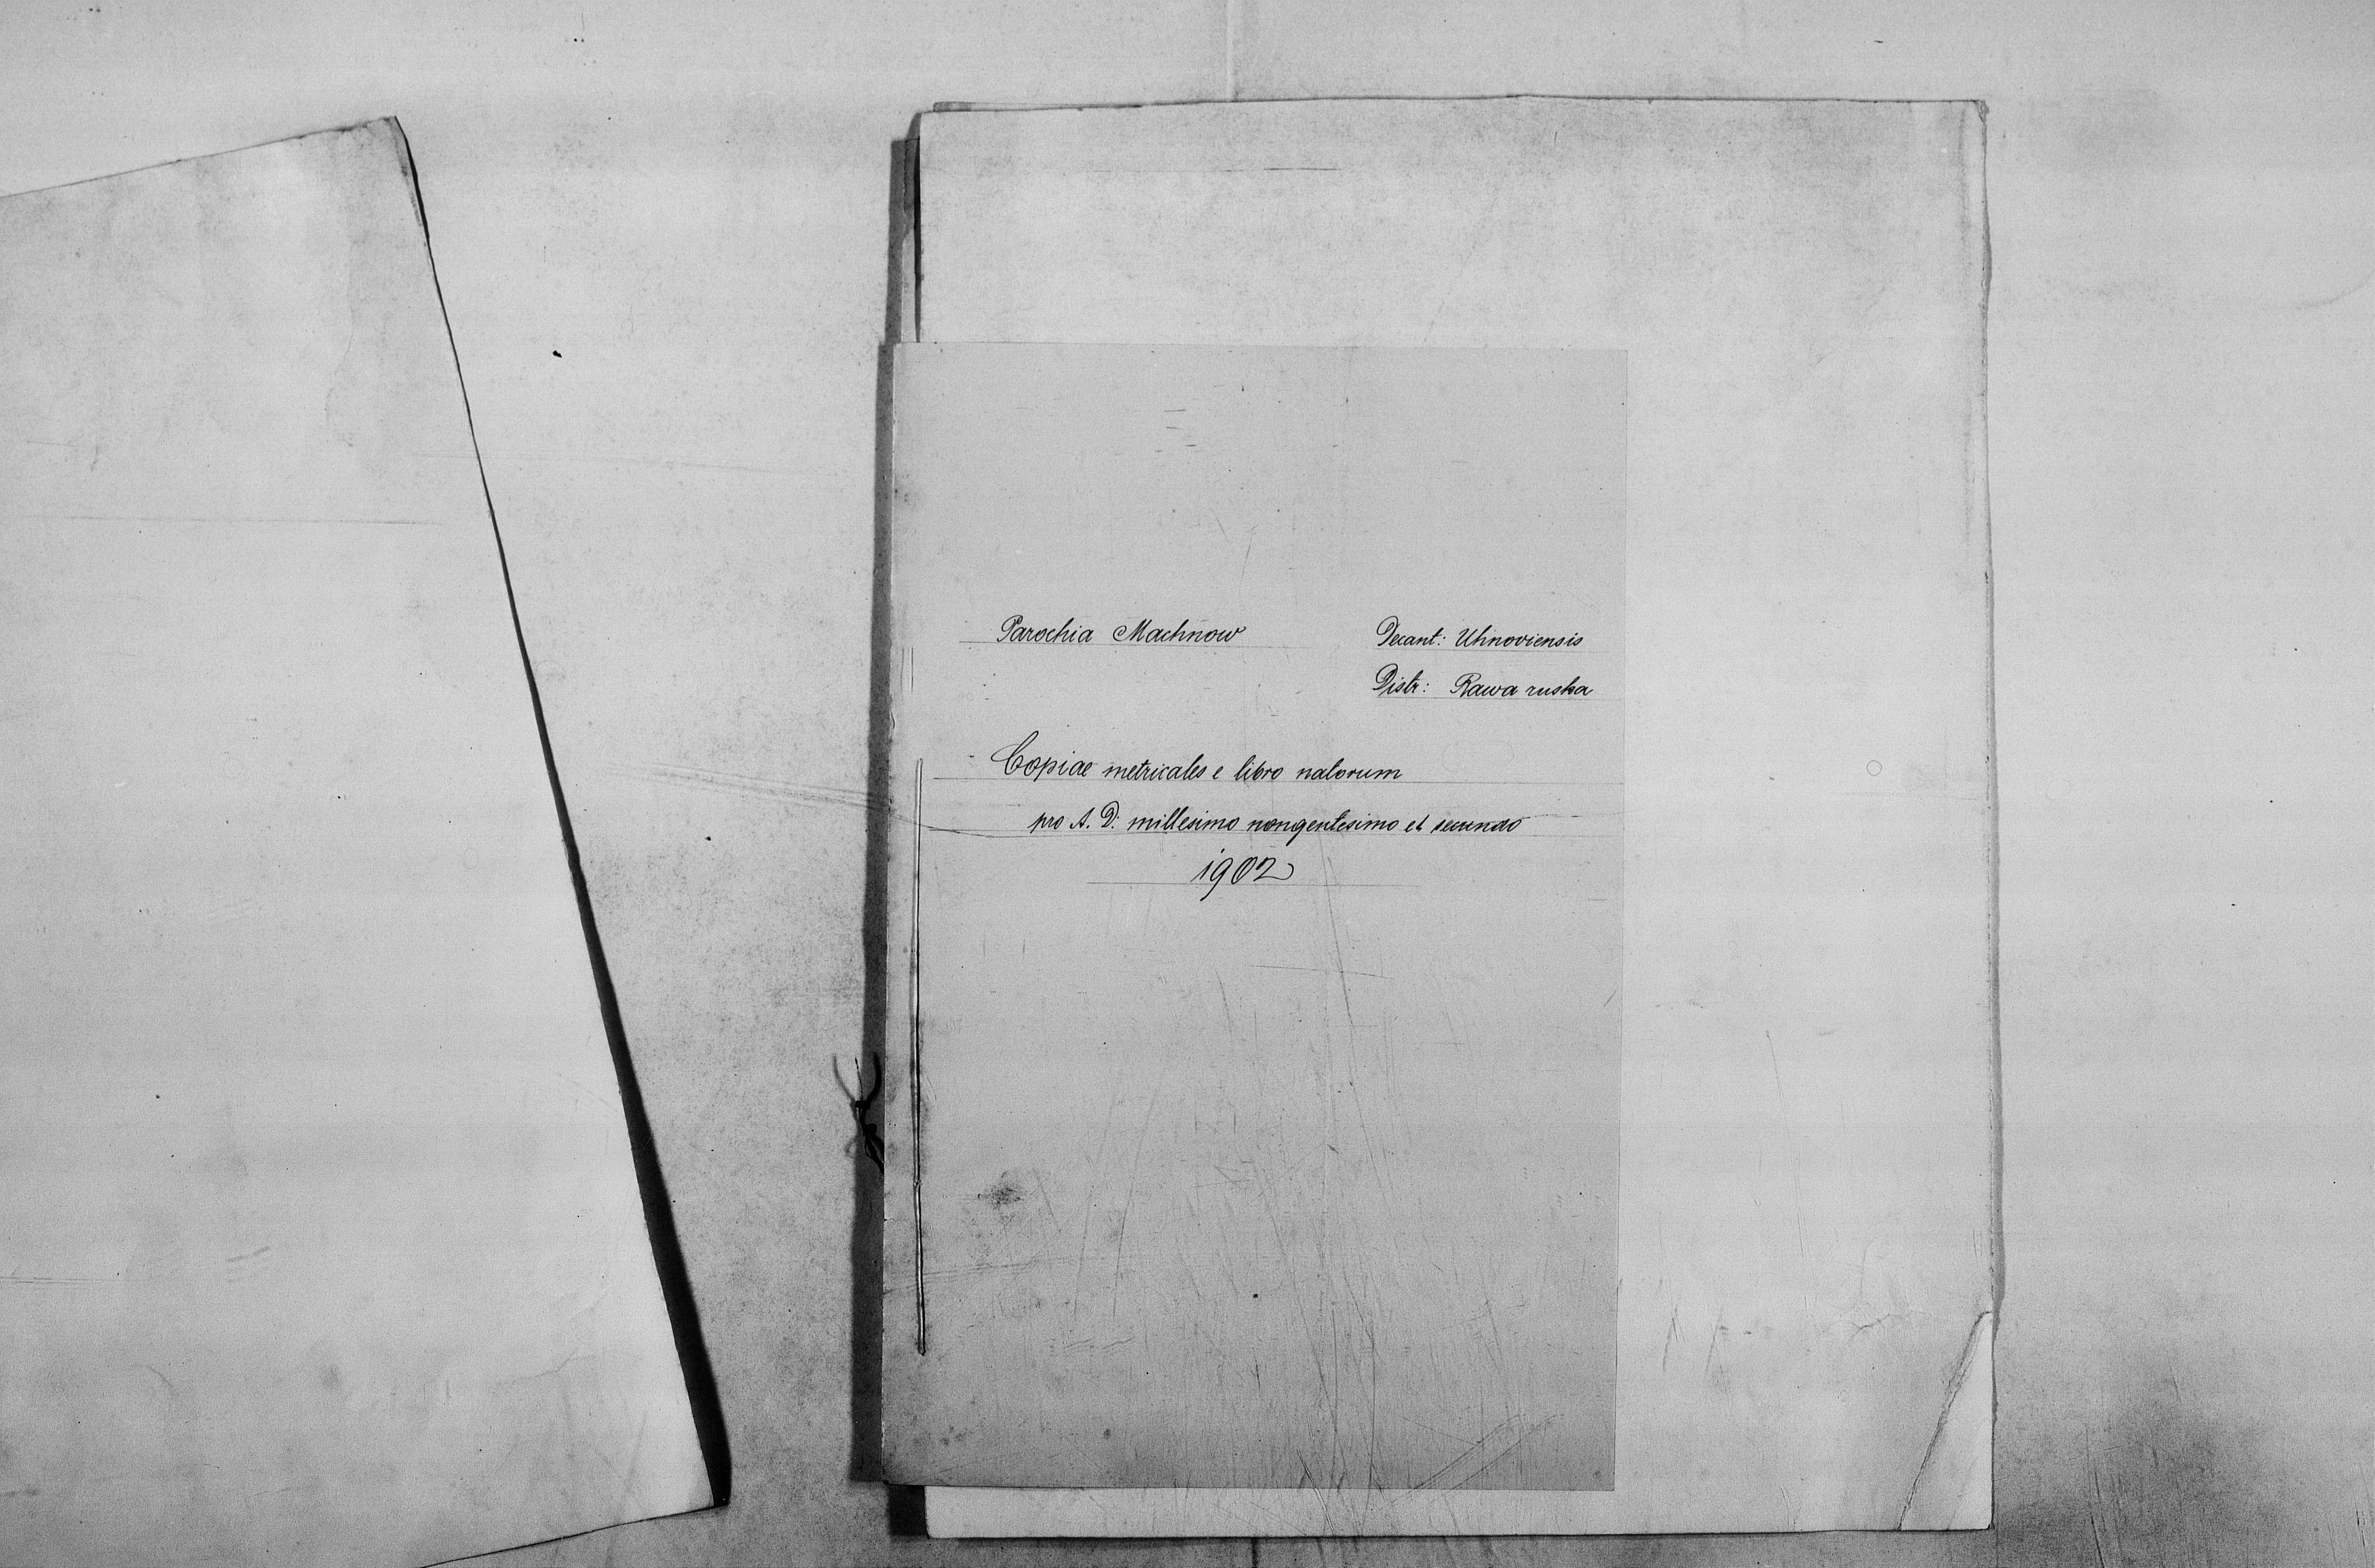 Parochia Machnow
Decant: Uhnoviensis
Distr: Rawa ruska
Copiae metricales e libro natorum
pro A. D. millesimo nongentesimo et secundo
1902